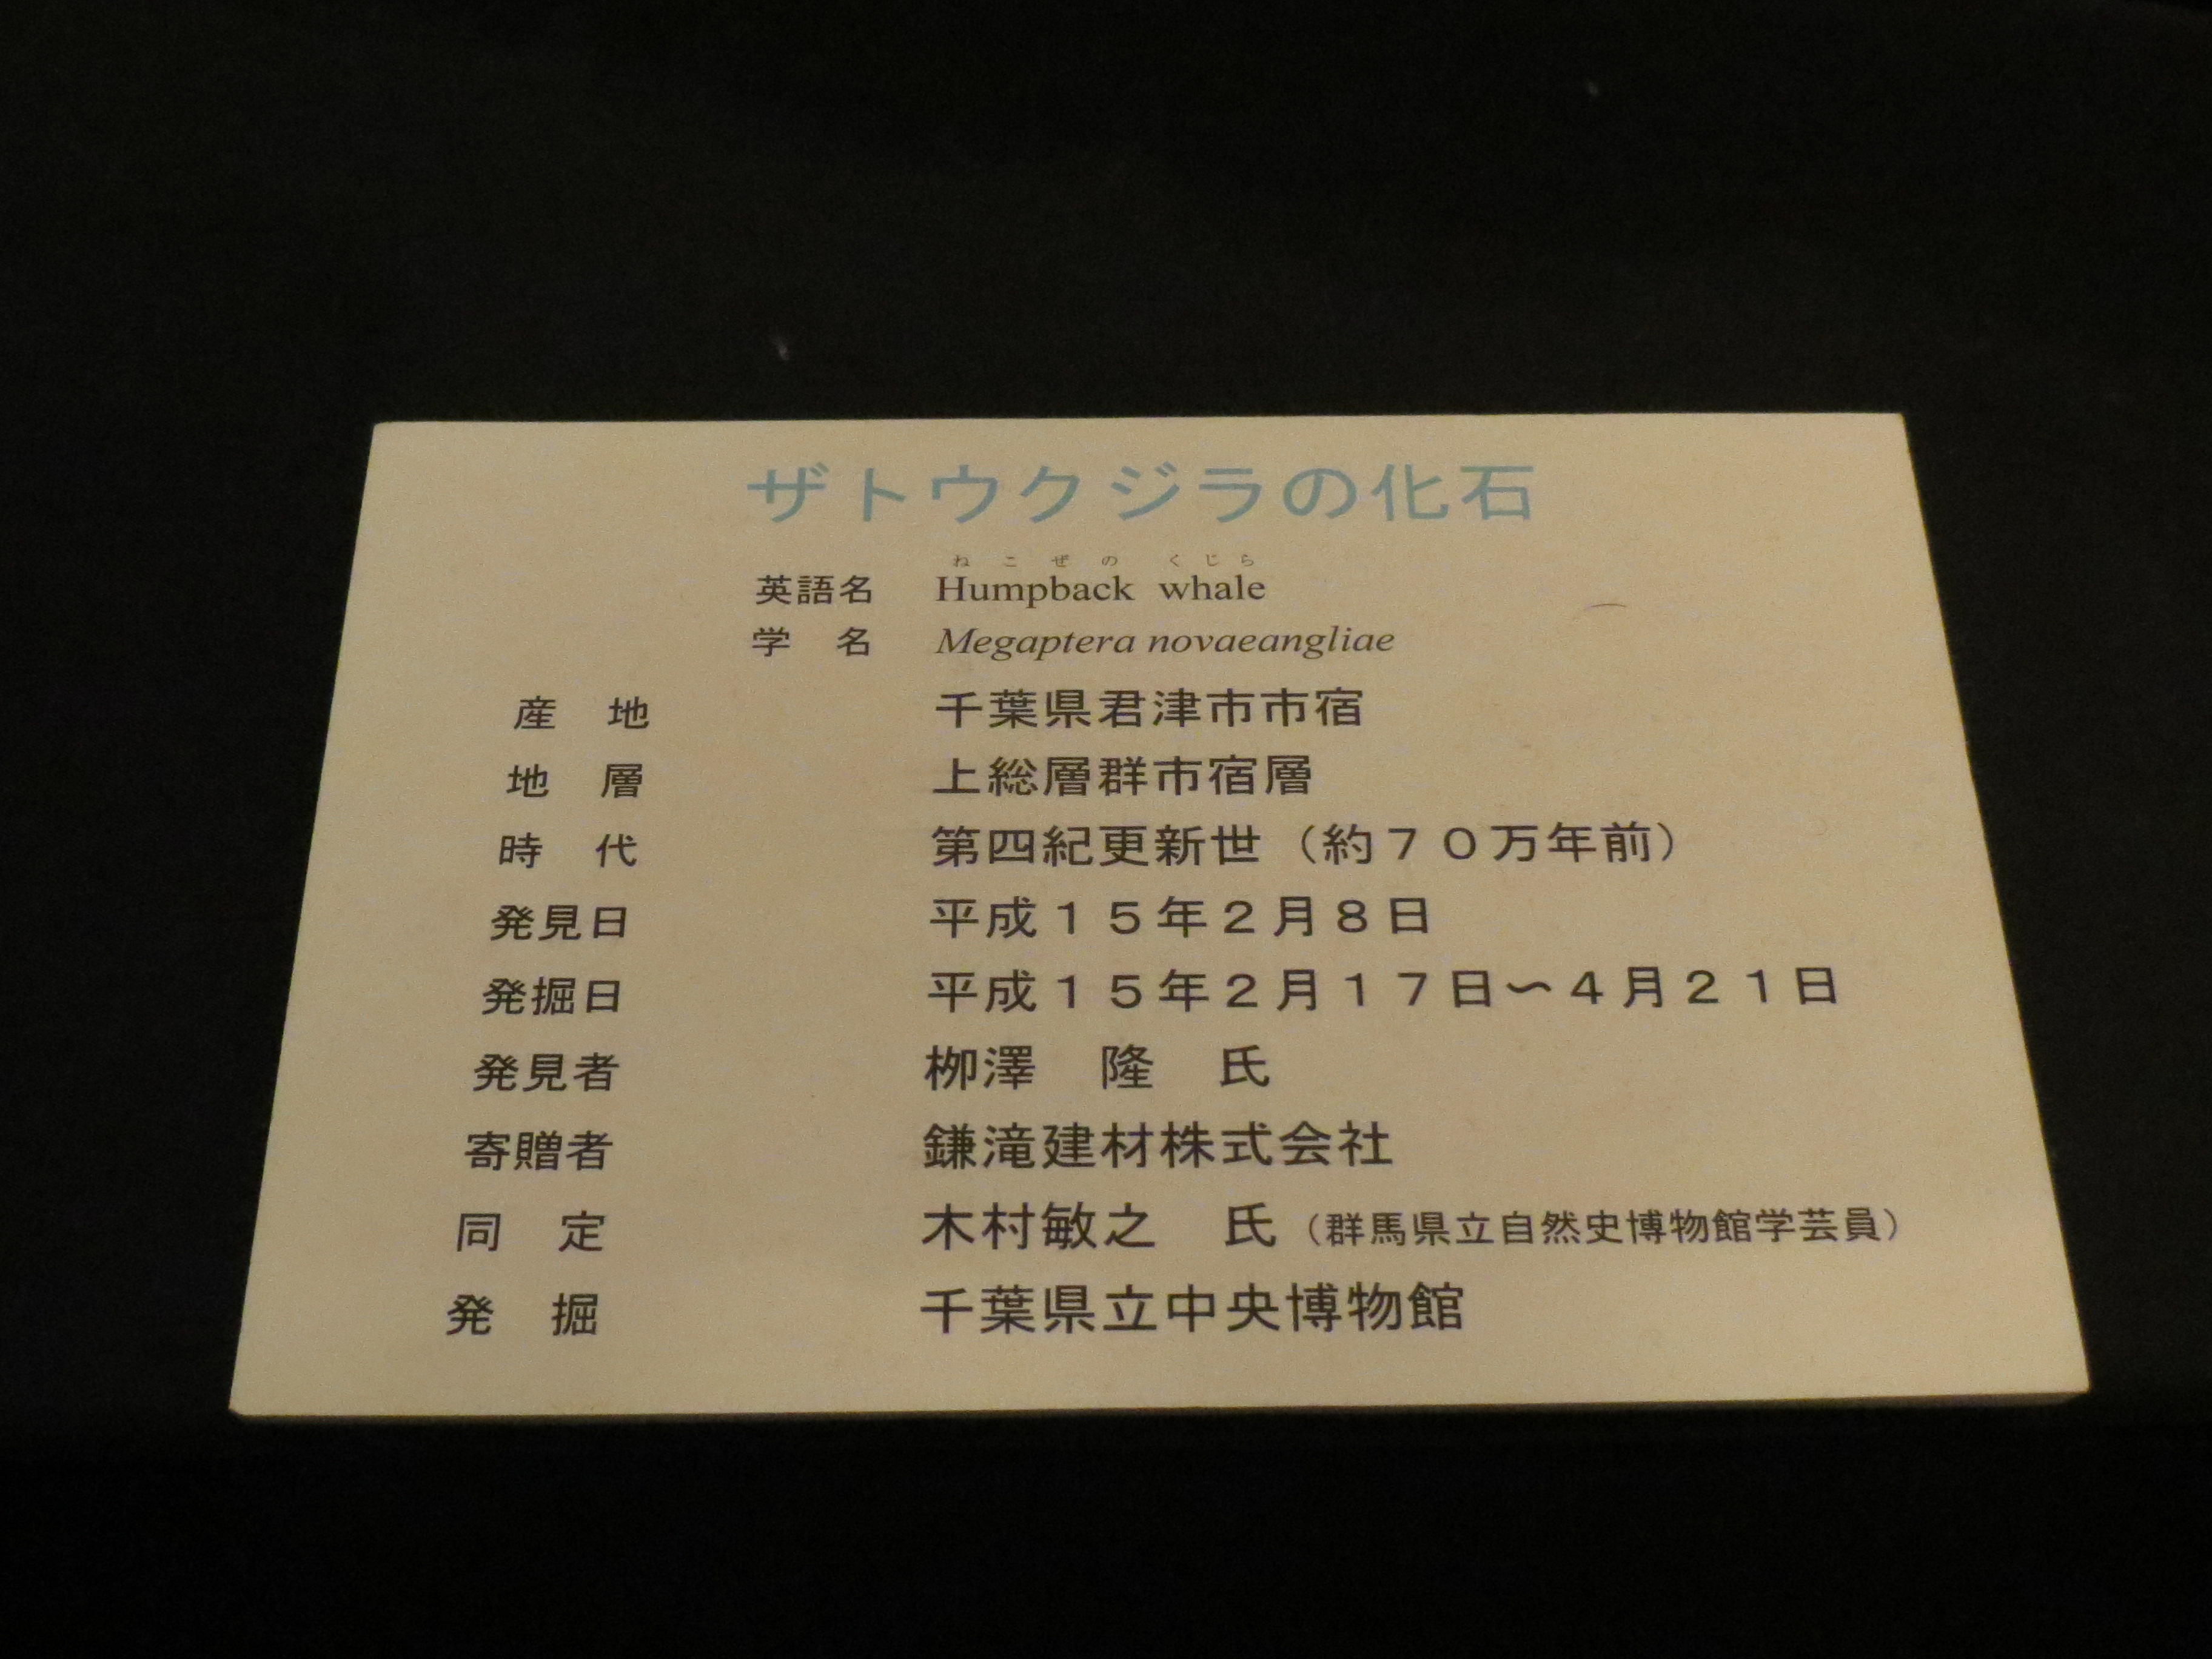 ザトウクジラの化石
ねこぜの くじら
英語名 Humpback whale
学 名 Megaptera novaeangliae
産 地 千葉県君津市市宿
地 層 上総層群市宿層
時 代 第四紀更新世（約７０万年前）
発見日 平成１５年２月８日
発掘日 平成１５年２月１７日〜４月２１日
発見者 栁澤 隆 氏
寄贈者 鎌滝建材株式会社
同 定 木村敏之 氏（群馬県立自然史博物館学芸員）
発 掘 千葉県立中央博物館